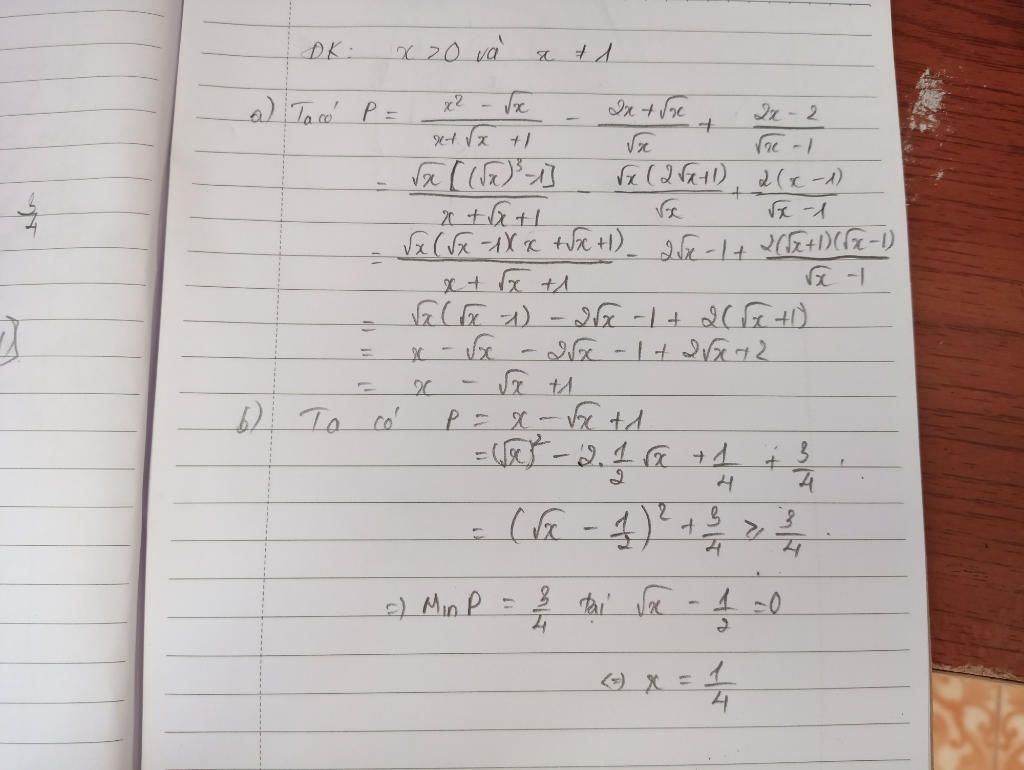 ĐK: x > 0 và x ≠ 1
a) Ta có P = (x² - √x)/(x + √x + 1) - (2x + √x)/√x + (2x - 2)/(√x - 1)
= √x[(√x)³ - 1]/(x + √x + 1) - √x(2√x + 1)/√x + 2(x - 1)/(√x - 1)
= √x(√x - 1)(x + √x + 1)/(x + √x + 1) - 2√x - 1 + 2(√x + 1)(√x - 1)/(√x - 1)
= √x(√x - 1) - 2√x - 1 + 2(√x + 1)
= x - √x - 2√x - 1 + 2√x + 2
= x - √x + 1
b) Ta có P = x - √x + 1
= (√x)² - 2.1/2 √x + 1/4 + 3/4.
= (√x - 1/2)² + 3/4 ≥ 3/4.
=) Min P = 3/4 tại √x - 1/2 = 0
<=> x = 1/4
3/4
1)]